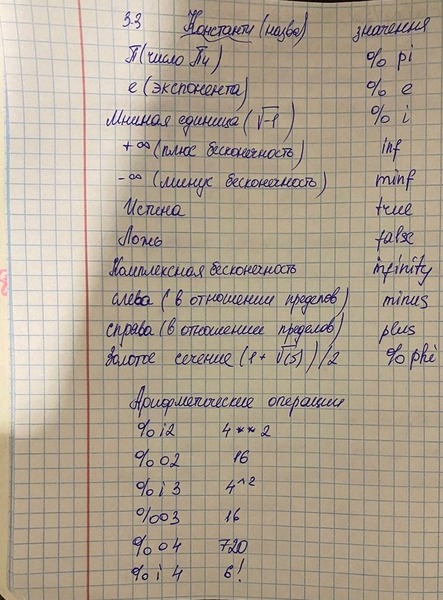 3.3 Константи (назва) значення
П (число Пи) % pi
е (экспонента) % e
Мнимая единица (√-1) % i
+∞ (плюс бесконечность) inf
-∞ (минус бесконечность) minf
Истина true
Ложь false
Комплексная бесконечность infinity
слева (в отношении пределов) minus
справа (в отношении пределов) plus
Золотое сечение (1 + √(5))/2 % phi
Арифметические операции
% i2 4 ** 2
% o2 16
% i 3 4^2
% o3 16
% o 4 720
% i 4 6!